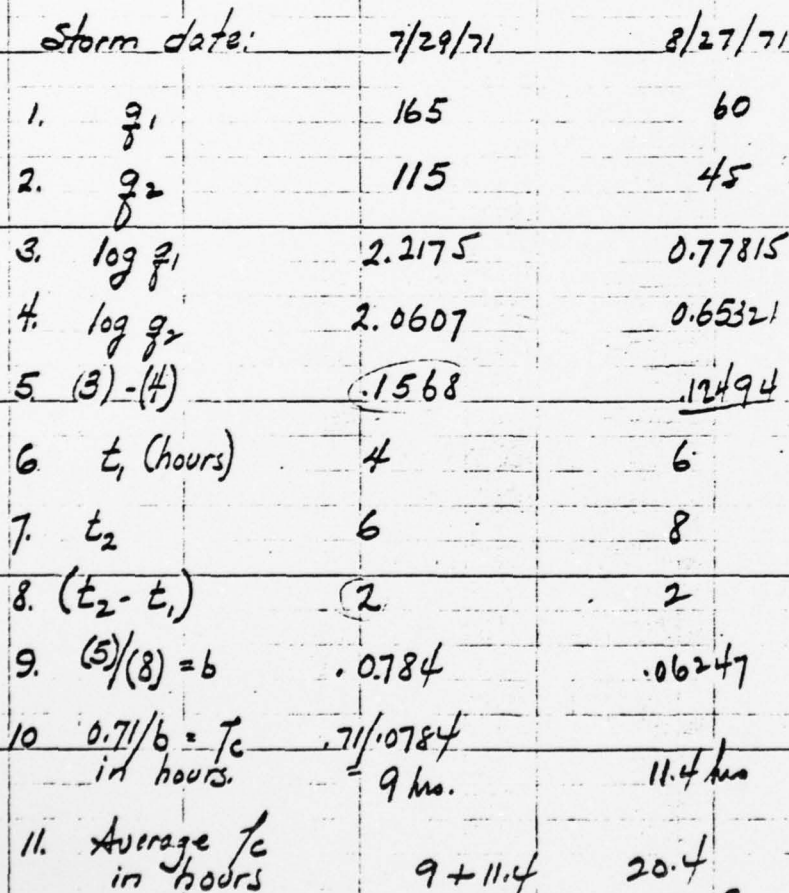 Storm date: 7/29/71 8/27/71
1. q1 165 60
2. q2 115 45
3. log q1 2.2175 0.77815
4. log q2 2.0607 0.65321
5. (3)-(4) .1568 .12494
6 t1 (hours) 4 6
7. t2 6 8
8. (t2 - t1) 2 2
9. (5)/(8) = b .0784 .06247
10 0.71/b = Tc .71/.0784
in hours. = 9 hrs. 11.4 hrs
11. Average Tc
in hours 9 + 11.4 20.4